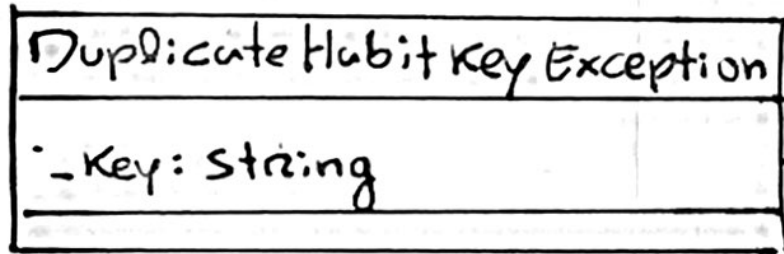 DuplicateHabitKeyException
- Key: String